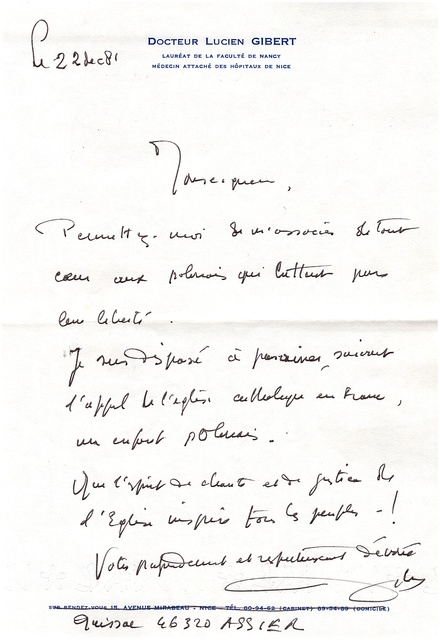 Docteur Lucien GIBERT
LAURÉAT DE LA FACULTÉ DE NANCY
MÉDECIN ATTACHÉ DES HÔPITAUX DE NICE
Le 22 dec 81
Monseigneur,
Permettez-moi de m'associer de tout
cœur aux polonais qui luttent pour
leur liberté.
Je suis disposé à parrainer, suivant
l'appel de l'église catholique en France,
un enfant polonais.
Que l'esprit de charité et de justice de
l'Eglise inspire tous les peuples - !
Votre profondément et respectueusement dévoué
SUR RENDEZ-VOUS 15, AVENUE MIRABEAU - NICE - TÉL. (CABINET) (DOMICILE)
Quissac 46320 ASSIER